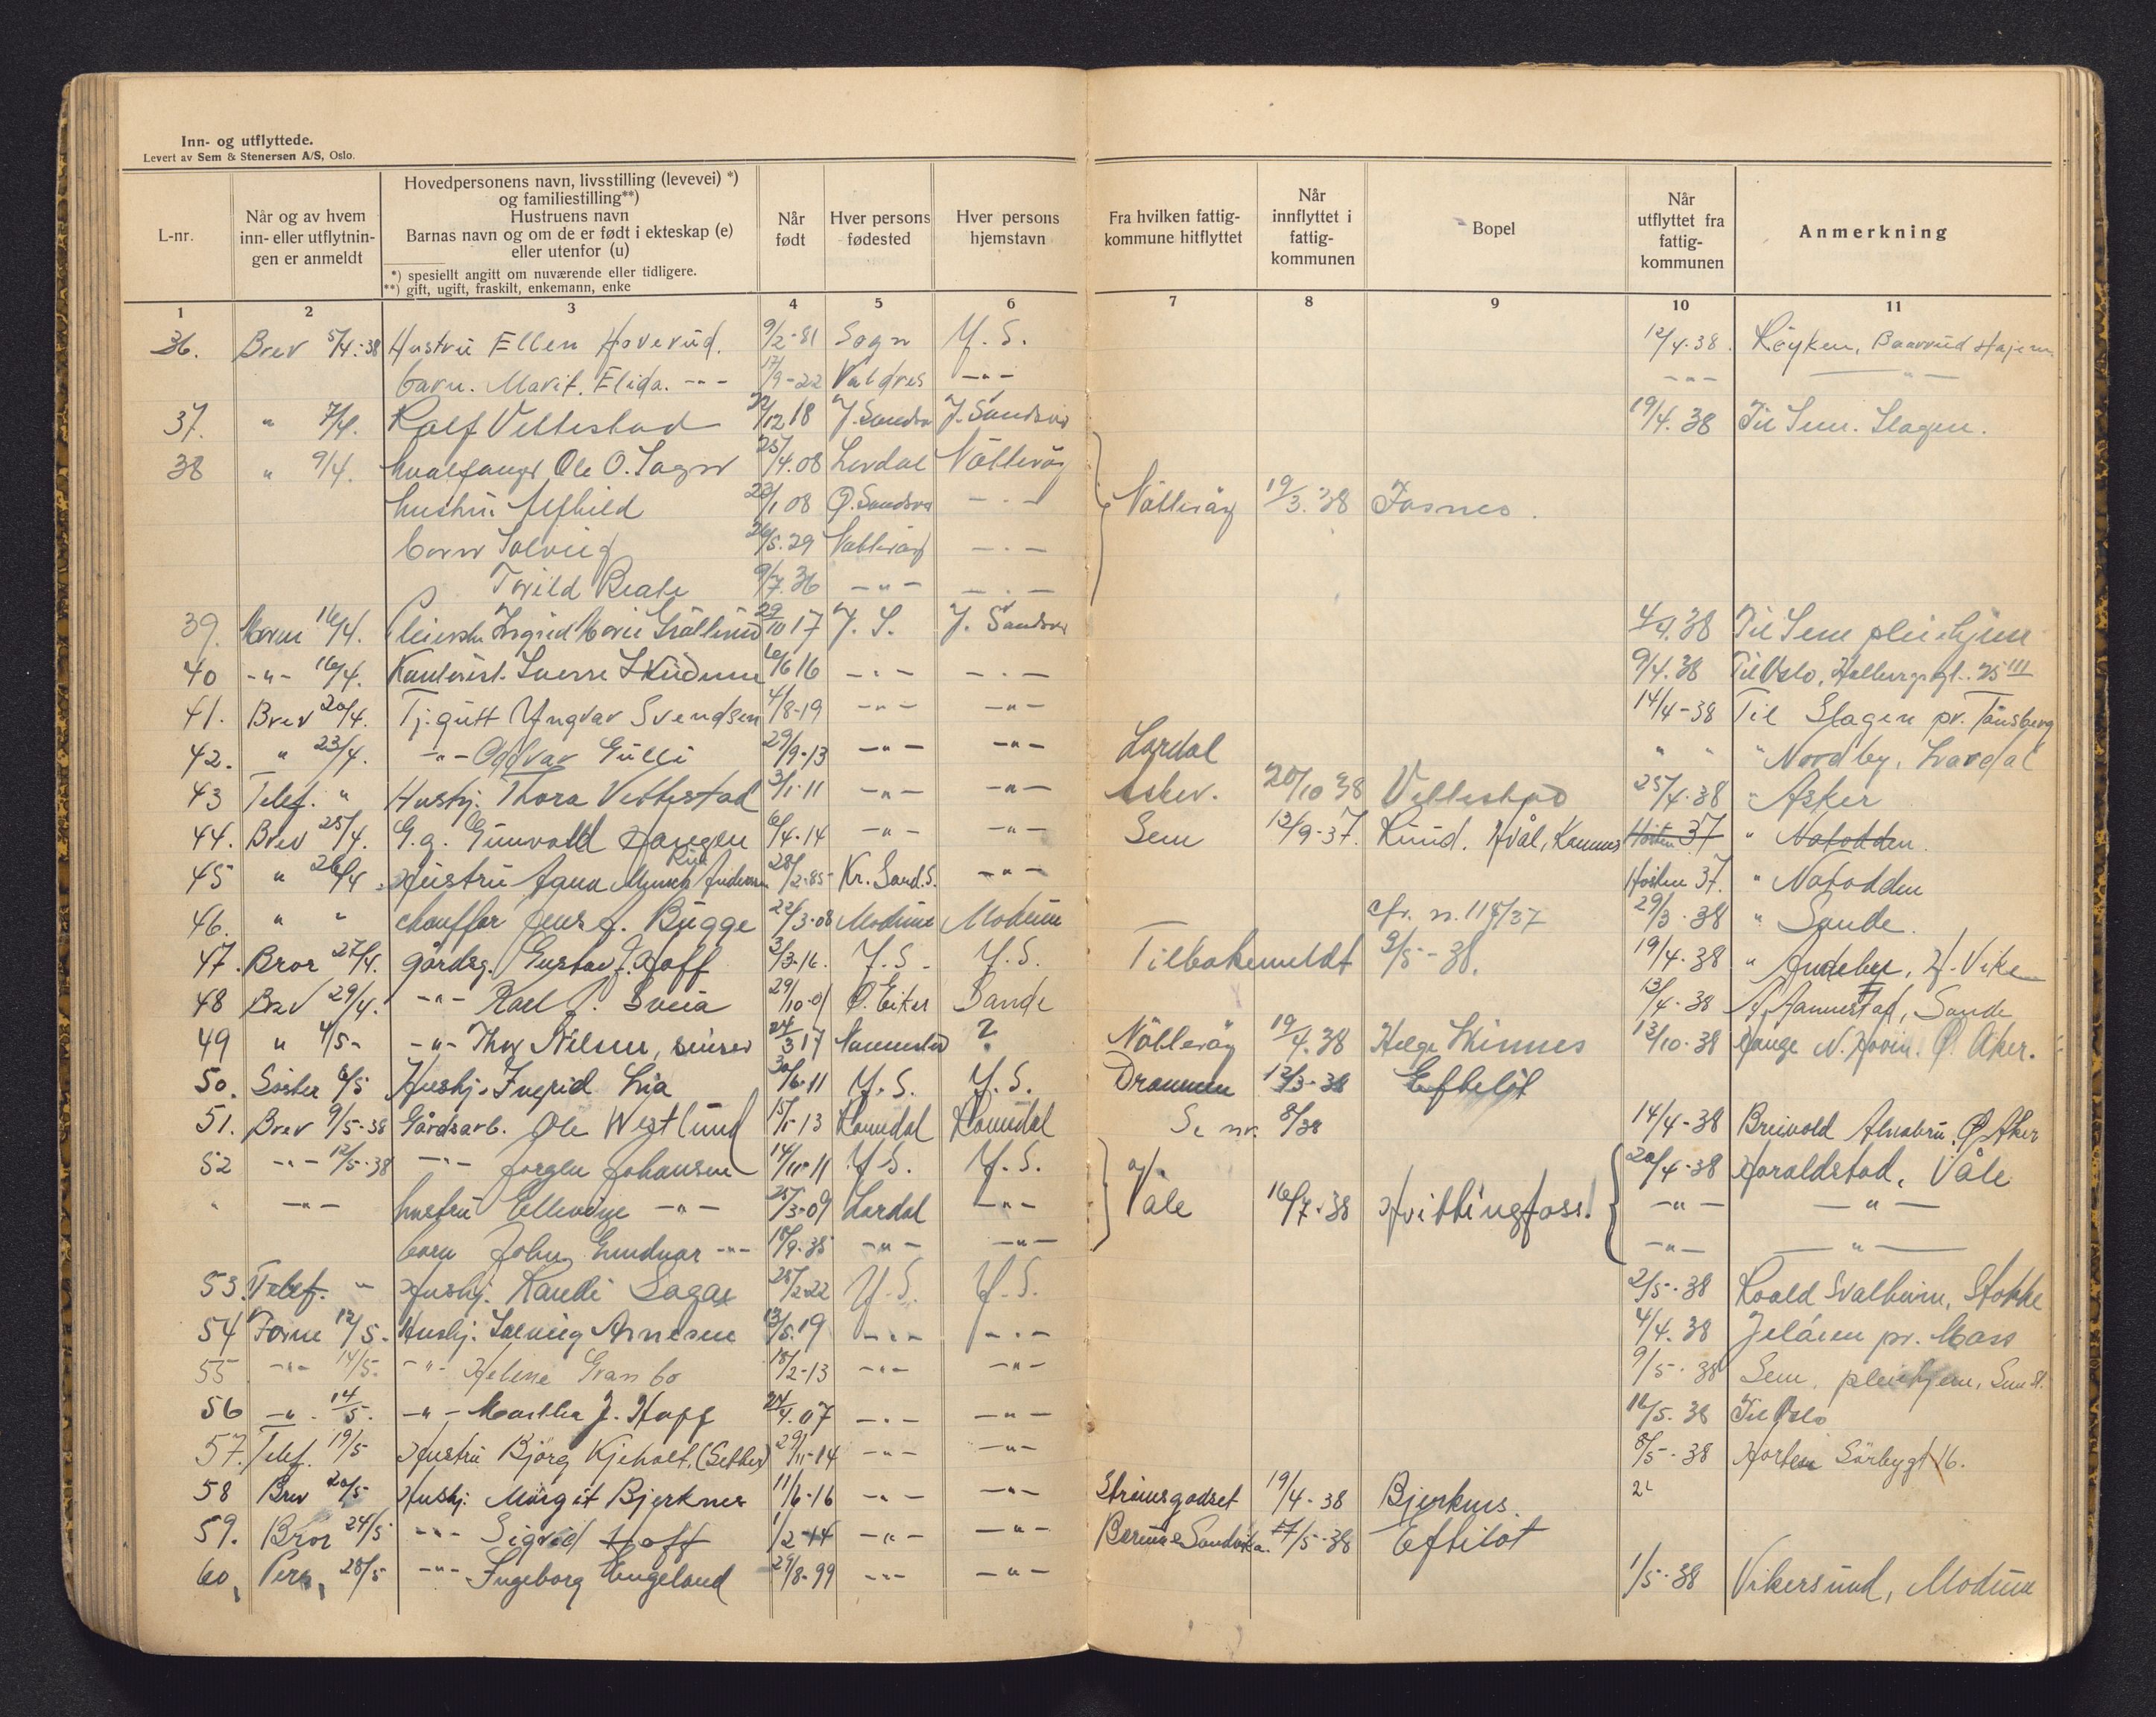 Inn- og utflyttede.
Levert av Sem & Stenersen A/S, Oslo.
L-nr.
Når og av hvem
inn- eller utflytnin-
gen er anmeldt
Hovedpersonens navn, livsstilling (levevei) *)
og familiestilling**)
Hustruens navn
Barnas navn og om de er født i ekteskap (e)
eller utenfor (u)
*) spesiellt angitt om nuværende eller tidligere.
**) gift, ugift, fraskilt, enkemann, enke
Når
født
Hver persons
fødested
Hver persons
hjemstavn
Fra hvilken fattig-
kommune hitflyttet
Når
innflyttet i
fattig-
kommunen
Bopel
Når
utflyttet fra
fattig-
kommunen
Anmerkning
1 2 3 4 5 6 7 8 9 10 11
36. Brev 5/4-38 Hustru Ellen Hoverud. 9/2-81 Sogn Y.S. 12/4-38. Røyken,
barn. Marit. Elida. -"- 17/9-22 Valdres -"- -"- -"-
37. " 7/4. Rolf Vettestad 22/12 18 Y. Sandsv Y. Sandsvær 19/4. 38 Til Sem. Slagen.
38 " 9/4. hvalfanger Ole O. Sagen 25/4.08 Lardal Nøtterøy
hustru Alfhild 23/1 08 Ø. Sandsvær -"- Nøtterøy 19/3. 38 Fosnes.
barn Solveig 26/5.29 Nøtterøy -"-
Torild Beate 9/7.36 -"- -"-
39. Moren 16/4. Pleierske Ingrid Marie 29/10 17 Y. S. Y. Sandsvær 4/4.38 Til Sem pleiehjem
40 -"- 16/4. Kontorist. Sverre Skudum 6/6 16 -"- -"- 9/4.38 Til Oslo, 25 III
41. Brev 20/4. Tj.gutt Yngvar Svendsen 4/8-19 -"- -"- 14/4-38 Til Slagen pr. Tønsberg
42. " 23/4. -"- Oddvar Gulli 29/9-13 -"- -"- Lardal " " " Nordby, Lardal
43 Telef. " Hushj. Thora Vettestad 3/1-11 -"- -"- Asker. 20/10 38 Vettestad 25/4.38 " Asker
44. Brev 25/4. G.g. Gunvald Haugen 6/4-14 -"- -"- Sem 12/9-37. Knud. Hvål, Høsten 37 " Notodden.
45 " 26/4. Hustru Agna 28/2-85 Kr. Sand.S. -"- Høsten 37. " Notodden
46. " " chauffør Jens J. Bugge 22/3-08 Modum Modum cfr. n. 118/37 29/3-38 " Sande.
47. Bror 27/4. gårdsg. Gustav J. Hoff 3/3-16. Y.S. Y.S. Tilbakemeldt 9/5-38. 19/4-38 " Andebu,
48 Brev 29/4. -"- Karl J. 29/10-01 Ø. Eiker Sande 13/4-38 Sande
49 " 4/5- -"- Thor Nilsen, 24/3 17 ? Nøtterøy 19/4.38 Helge Skinnes 13/10-38 Hauge N. Hovin. Ø. Aker.
50. Søster 6/5 Hushj. Ingrid Lia 30/6-11 Y.S. Y.S. Drammen 12/3-38 Efteløt
51. Brev 9/5-38 Gårdsarb. Ole Westlund 15/1-13 Romdal Romdal Se nr. 8/38 14/4-38 Breivold Alnabru, Ø. Aker
52 -"- 12/5-38 -"- Jørgen Johansen 14/11-11 Y.S. Y.S. 20/4-38 Haraldstad, Våle
" -"- hustru Ellevine -"- 25/3-09 Lardal -"- Våle 16/7.38 Hvittingfoss! -"- -"-
barn John Gundvar -"- 18/9.35 -"- -"- -"- -"-
53. Telef. " Hushj. Randi Sagar 25/2-22 Y.S. Y.S. 2/5-38 Roald Svalheim, Stokke
54 Farne 12/5- Hushj. Solveig Arnesen 13/5.19 -"- -"- 4/4.38 Jeløien pr. Moss
55 -"- 14/5. -"- Helene Granbo 18/2-13 -"- -"- 9/5-38 Sem, pleiehjem, Sem st.
56 -"- 14/5. -"- Martha J. Hoff 24/4.07 -"- -"- 16/5.38 Til Oslo
57. Telef. 19/5 Hustru Bjørg Kjeholt, (Sether) 29/11-14 -"- -"- 8/5-38 Horten Sørbygt 16.
58 Brev 20/5 Hushj. Margit Bjerknes 11/6-16 -"- -"- Strømsgodset 19/4-38 Bjerknes. 2
59. Bror 24/5 -"- Sigrid Hoff 1/2-14 -"- -"- Bærum Sandvika. 7/5-38 Efteløt
60, Pers, 28/5 -"- Ingeborg Engeland 29/8-99 -"- -"- 1/5-38 Vikersund, Modum